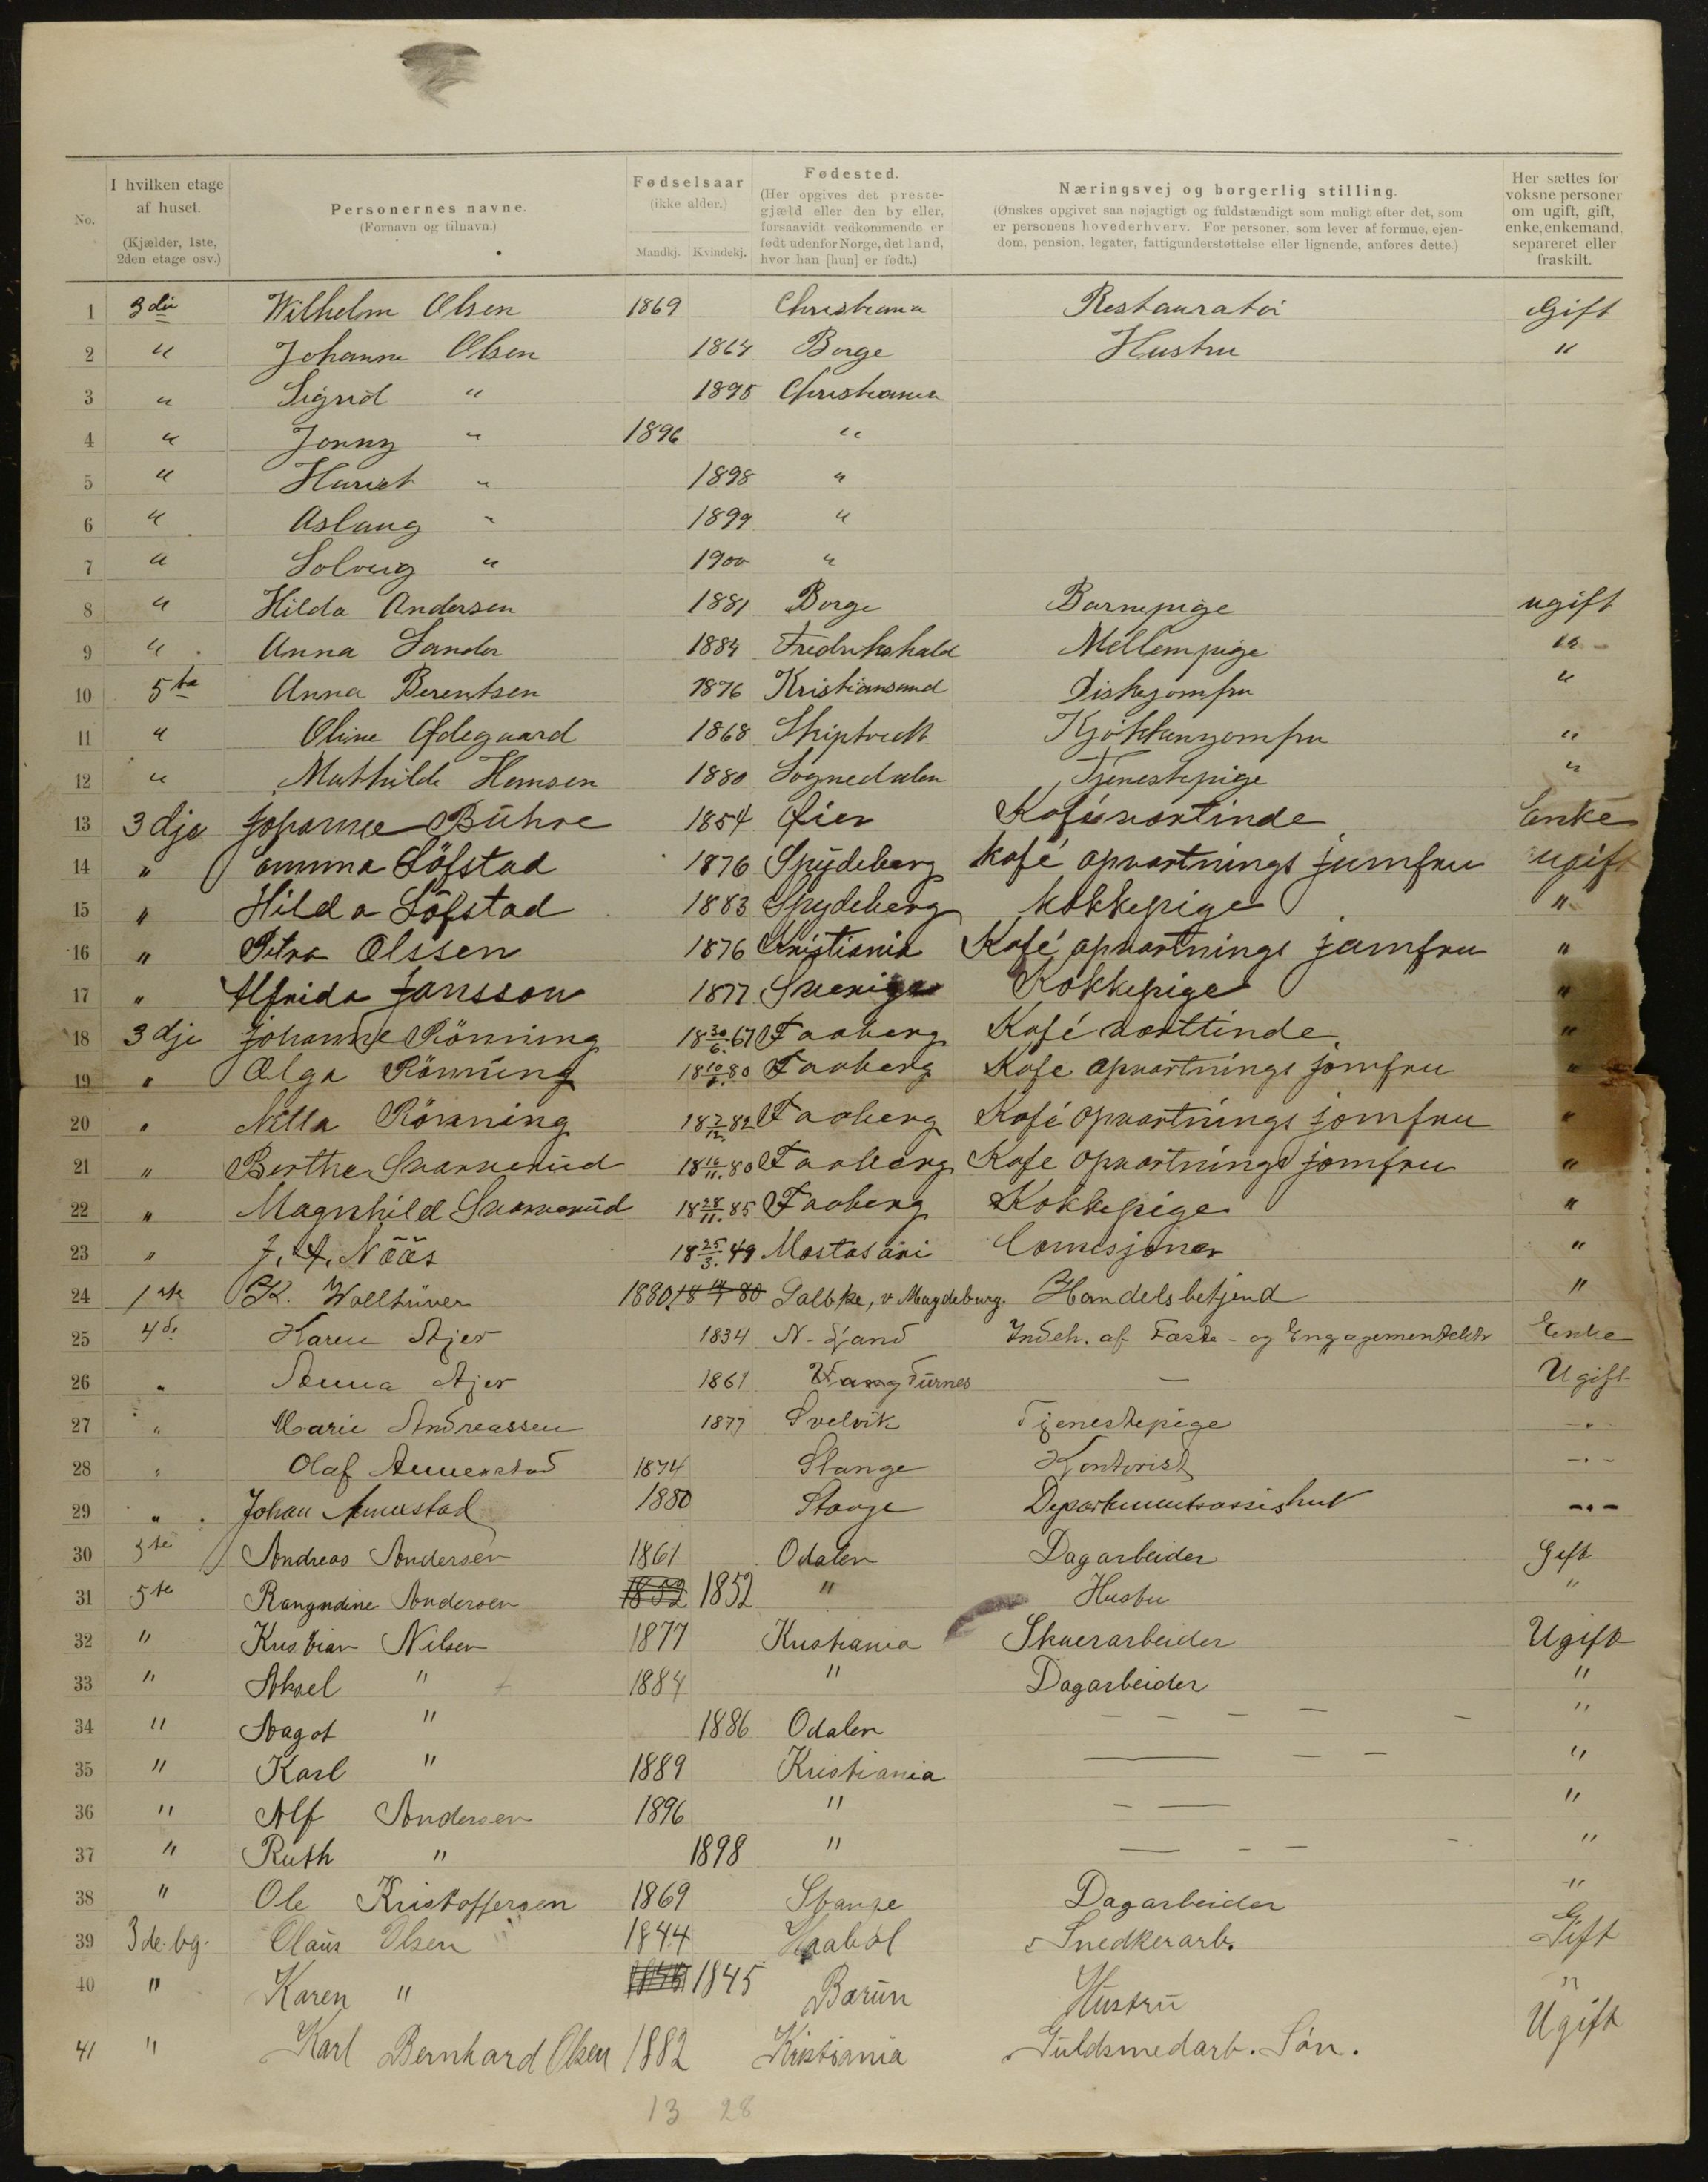 No.
I hvilken etage af huset.
(Kjælder, 1ste, 2den etage osv.)
Personernes navne.
(Fornavn og tilnavn.)
Fødselsaar
(ikke alder.)
Mandkj. Kvindekj.
Fødested.
(Her opgives det prestegjæld eller den by eller, forsaavidt vedkommende er født udenfor Norge, det land, hvor han [hun] er født.)
Næringsvej og borgerlig stilling.
(Ønskes opgivet saa nøjagtigt og fuldstændigt som muligt efter det, som er personens hovederhverv. For personer, som lever af formue, ejendom, pension, legater, fattigunderstøttelse eller lignende, anføres dette.)
Her sættes for voksne personer om ugift, gift, enke, enkemand, separeret eller fraskilt.
1 3die Wilhelm Olsen 1869 Christiania Restauratør Gift
2 " Johanne Olsen 1864 Borge Hustru "
3 " Sigrid " 1895 Christiania
4 " Jonny " 1896 "
5 " Harriet " 1898 "
6 " Aslaug " 1899 "
7 " Solveig " 1900 "
8 " Hilda Andersen 1881 Borge Barnepige ugift
9 " Anna Sander 1884 Fredrikshald Mellempige "
10 5te Anna Berentsen 1876 Kristiansand Diskejomfru "
11 " Oline Ødegaard 1868 Skiptvedt Kjøkkenjomfru "
12 " Mathilde Hansen 1880 Sognedalen Tjenestepige "
13 3dje Johanne Bühre 1854 Øier Kaféværtinde Enke
14 " Emma Löfstad 1876 Spydeberg Kafé opvartnings jumfru ugift
15 " Hilda Löfstad 1883 Spydeberg kokkepige "
16 " Petra Olssen 1876 Kristiania Kafé opvartnings jumfru "
17 " Alfrida Jansson 1877 Sverige Kokkepige "
18 3dje Johanne Rönning 18 30/6. 67 Faaberg Kafé værttinde "
19 " Olga Rönning 18 10/6. 80 Faaberg Kafe opvartnings jomfru "
20 " Nilla Rönning 18 7/12. 82 Faaberg Kafé opvartnings jomfru "
21 " Berthe Skarverud 18 16/11. 80 Faaberg Kafe opvartnings jomfru "
22 " Magnhild Skarverud 18 28/11. 85 Faaberg Kokkepige "
23 " J. A. Nöäs 18 25/3. 49 Mostasäri Comisjoner "
24 1ste K. Wallhüver 1880 18 80 Salbke, v Magdeburg. Handelsbetjend "
25 4de Karen Ajer 1834 N-Land Indeh. af Fæste- og Engagementsktr Enke
26 " Anna Ajer 1861 Vang Furnes — Ugift
27 " Marie Andreassen 1877 Svelvik Tjenestepige -"-
28 " Olaf Annexstad 1874 Stange Kontorist -"-
29 " Johan Annexstad 1880 Stange Departementsassistent -"-
30 5te Andreas Andersen 1861 Odalen Dagarbeider Gift
31 5te Rangndine Andersen 1852 1852 " Hustru "
32 " Kristian Nilsen 1877 Kristiania Skuerarbeider Ugift
33 " Aksel " 1884 " Dagarbeider "
34 " Aagot " 1886 Odalen — — — — — "
35 " Karl " 1889 Kristiania — — — "
36 " Alf Andersen 1896 " — — "
37 " Ruth " 1898 " — — — — "
38 " Ole Kristoffersen 1869 Stange Dagarbeider "
39 3de. bg. Olaus Olsen 1844 Haabøl Snedkerarb. Gift
40 " Karen " 1845 Bærum Hustru "
41 " Karl Bernhard Olsen 1882 Kristiania Guldsmedarb. Søn. Ugift
13 28